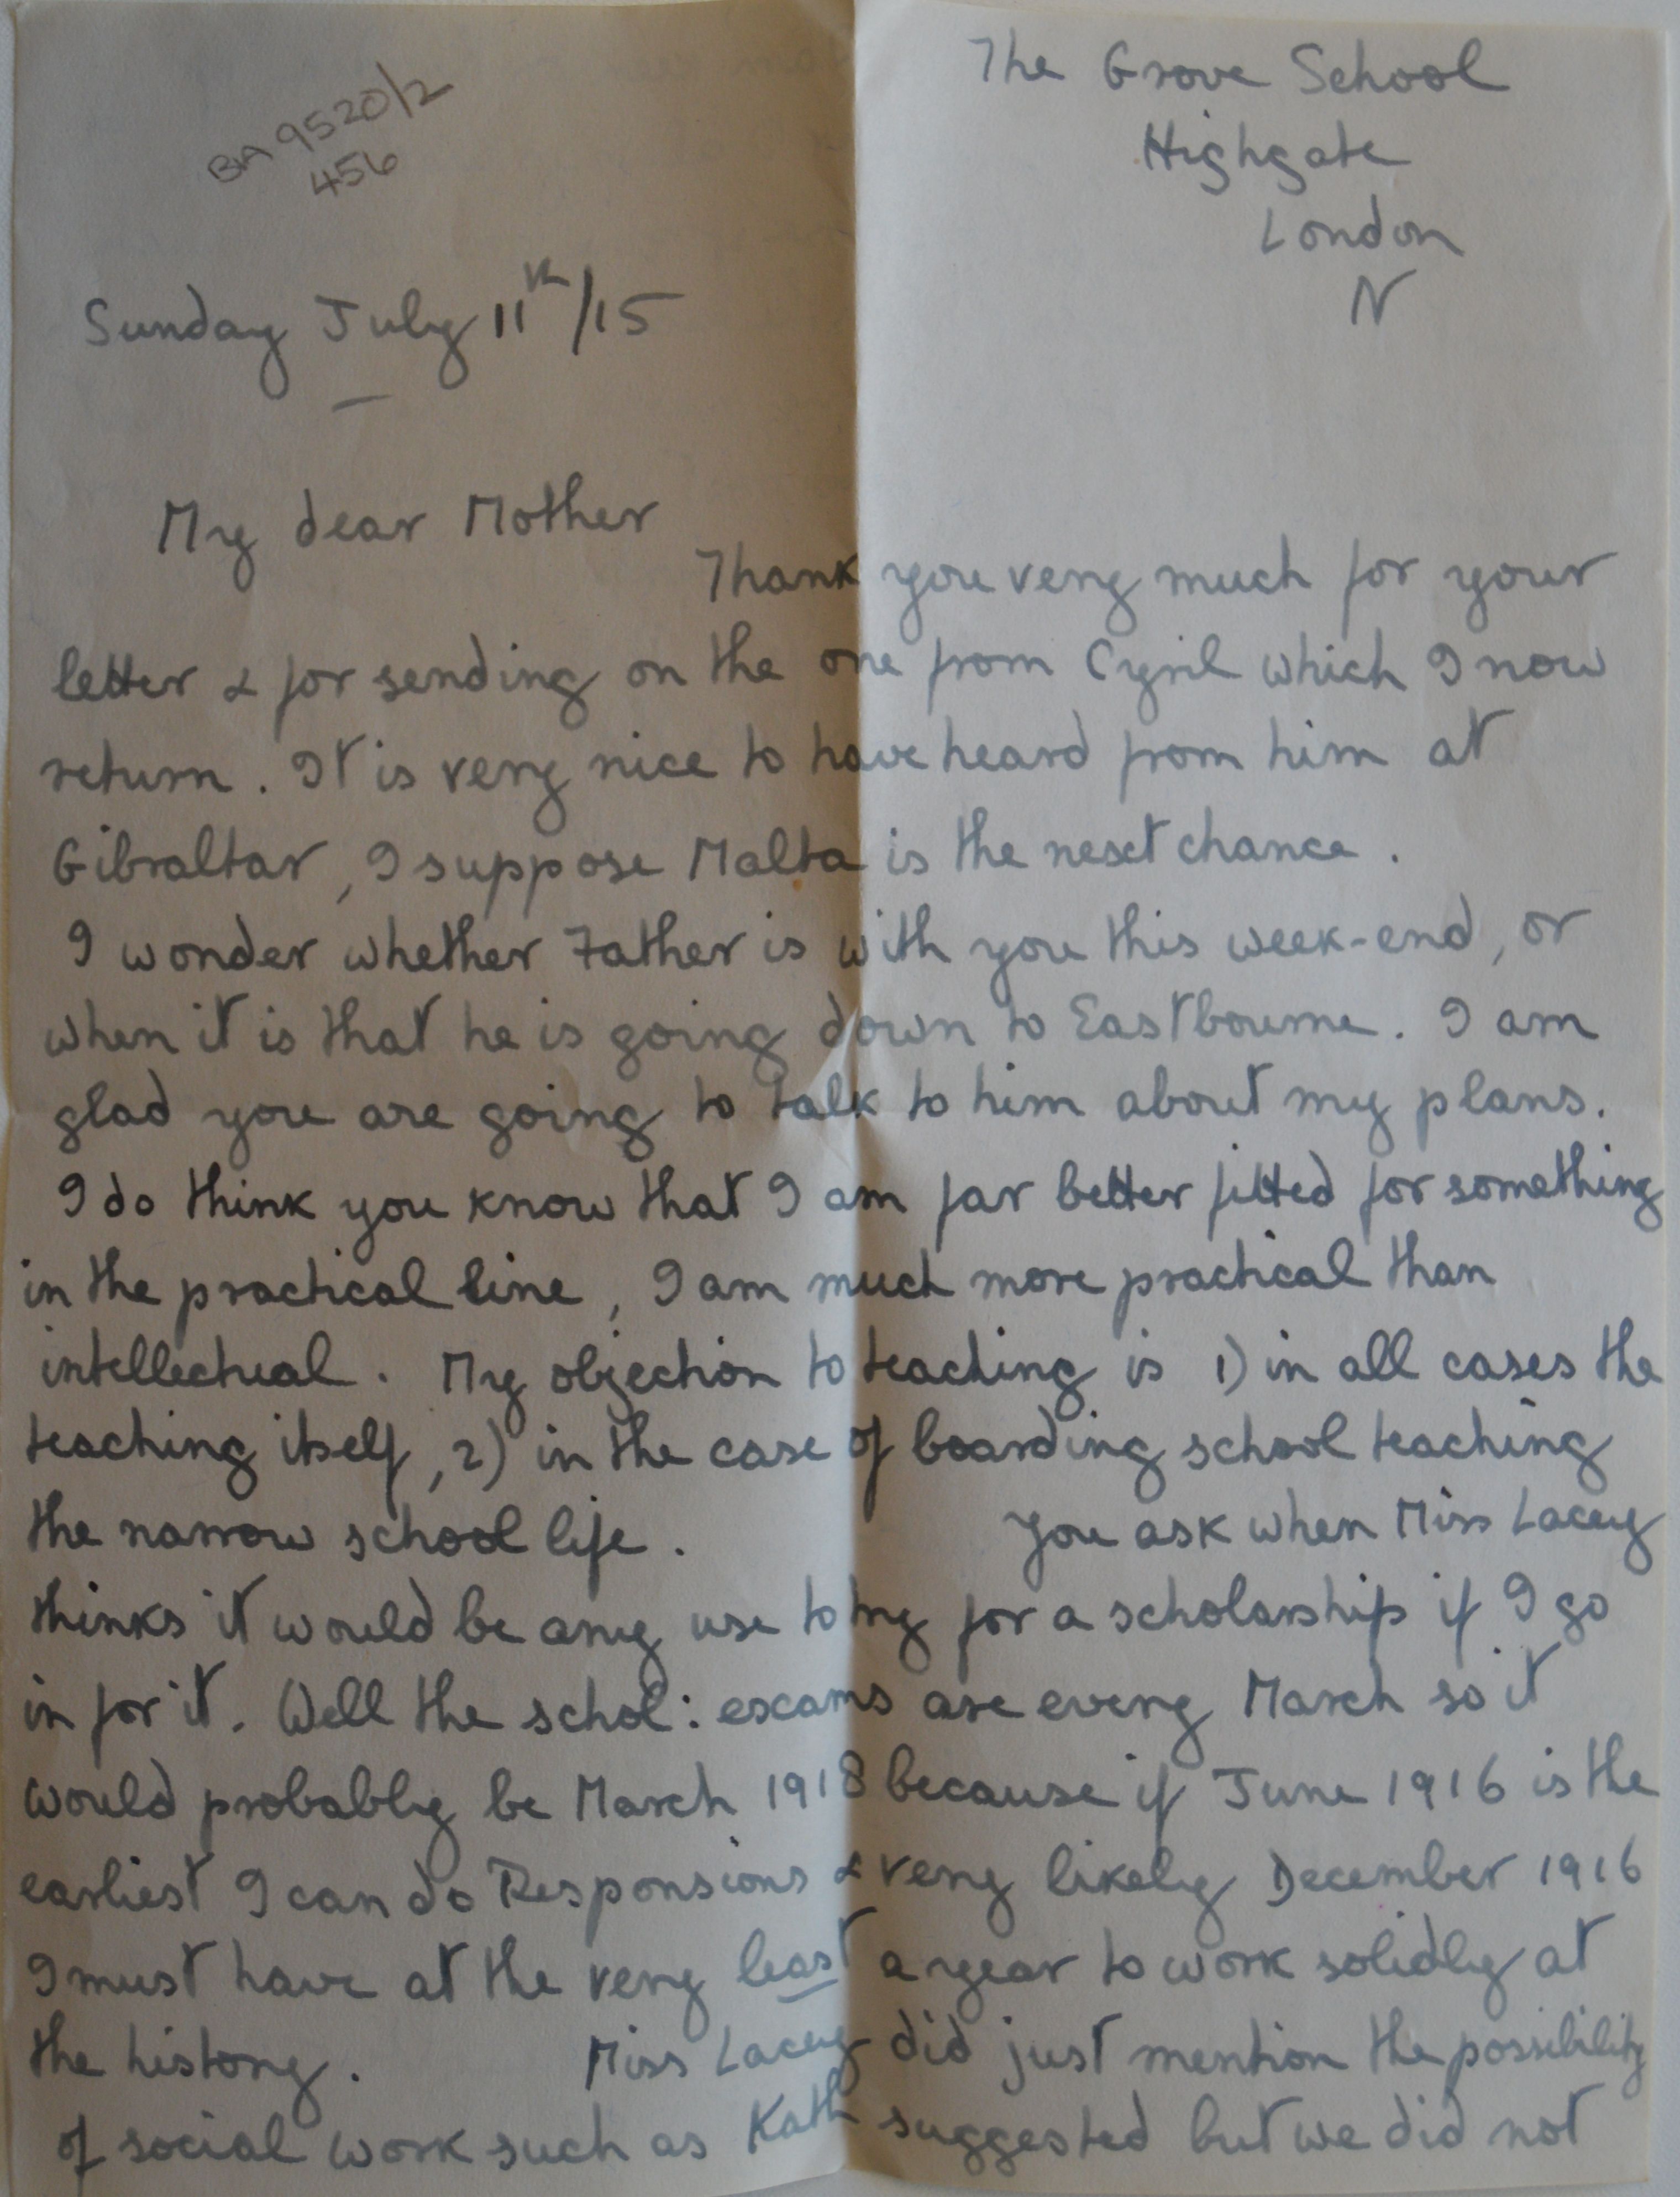 BA 9520/2
456
The Grove School
Highgate
London
N
Sunday July 11th/15
My dear Mother
Thank you very much for your
letter & for sending on the one from Cyril which I now
return. It is very nice to have heard from him at
Gibraltar, I suppose Malta is the next chance.
I wonder whether Father is with you this week-end, or
when it is that he is going down to Eastbourne. I am
glad you are going to talk to him about my plans.
I do think you know that I am far better fitted for something
in the practical line, I am much more practical than
intellectual. My objection to teaching is 1) in all cases the
teaching itself, 2) in the case of boarding school teaching
the narrow school life. You ask when Miss Lacey
thinks it would be any use to try for a scholarship if I go
in for it. Well the schol: exams are every March so it
would probably be March 1918 because if June 1916 is the
earliest I can do Responsions & very likely December 1916
I must have at the very least a year to work solidly at
the history. Miss Lacey did just mention the possibility
of social work such as Kath suggested but we did not